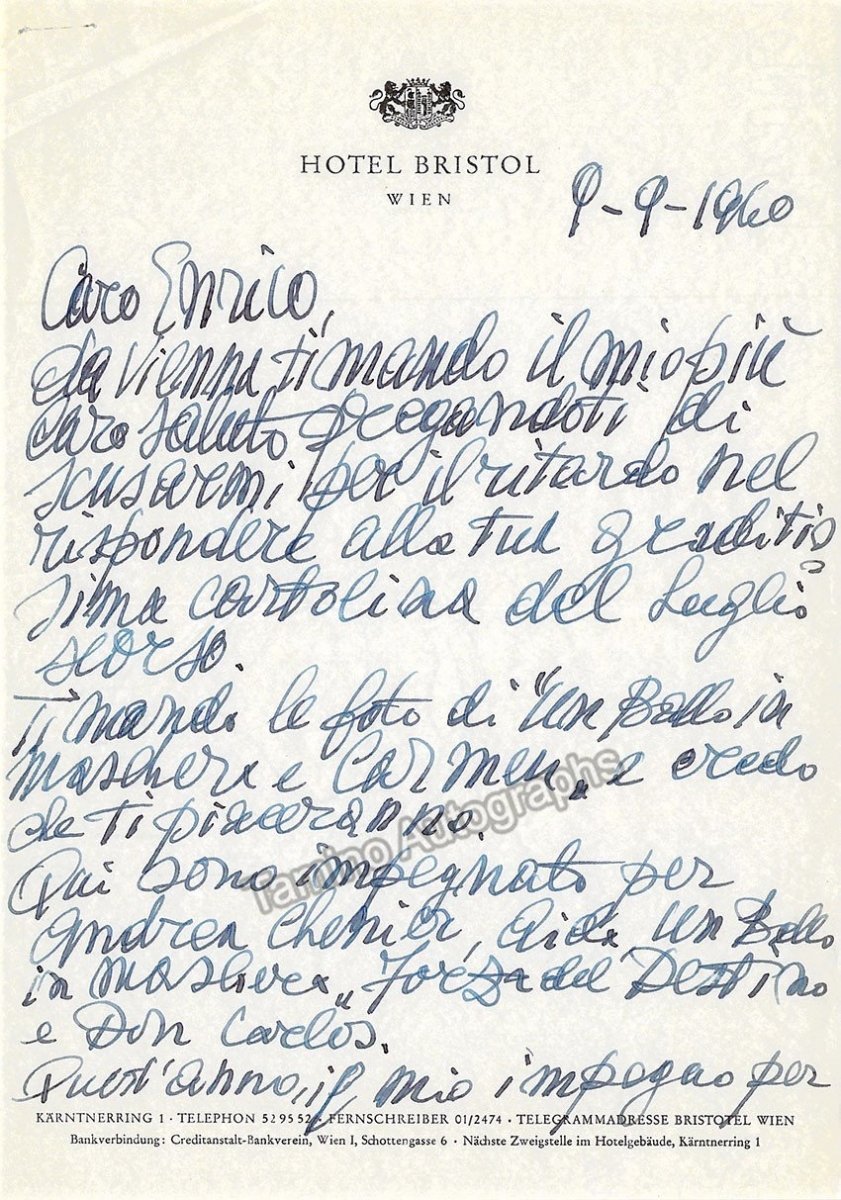 HOTEL BRISTOL
WIEN
9-9-1960
Caro Enrico,
da Vienna ti mando il mio più
caro saluto pregandoti di
scusarmi per il ritardo nel
rispondere alla tua graditis
sima cartolina del Luglio
scorso.
Ti mando le foto di "Un Ballo in
Maschera e Carmen„ e credo
che ti piaceranno.
Qui sono impegnato per
Andrea Chenier, Aida Un Ballo
in Maschera„ Forza del Destino
e Don Carlos.
Quest'anno, il mio impegno per
KÄRNTNERRING 1 · TELEPHON 529552 · FERNSCHREIBER 01/2474 · TELEGRAMMADRESSE BRISTOTEL WIEN
Bankverbindung: Creditanstalt-Bankverein, Wien I, Schottengasse 6 · Nächste Zweigstelle im Hotelgebäude, Kärntnerring 1
Tamino Autographs